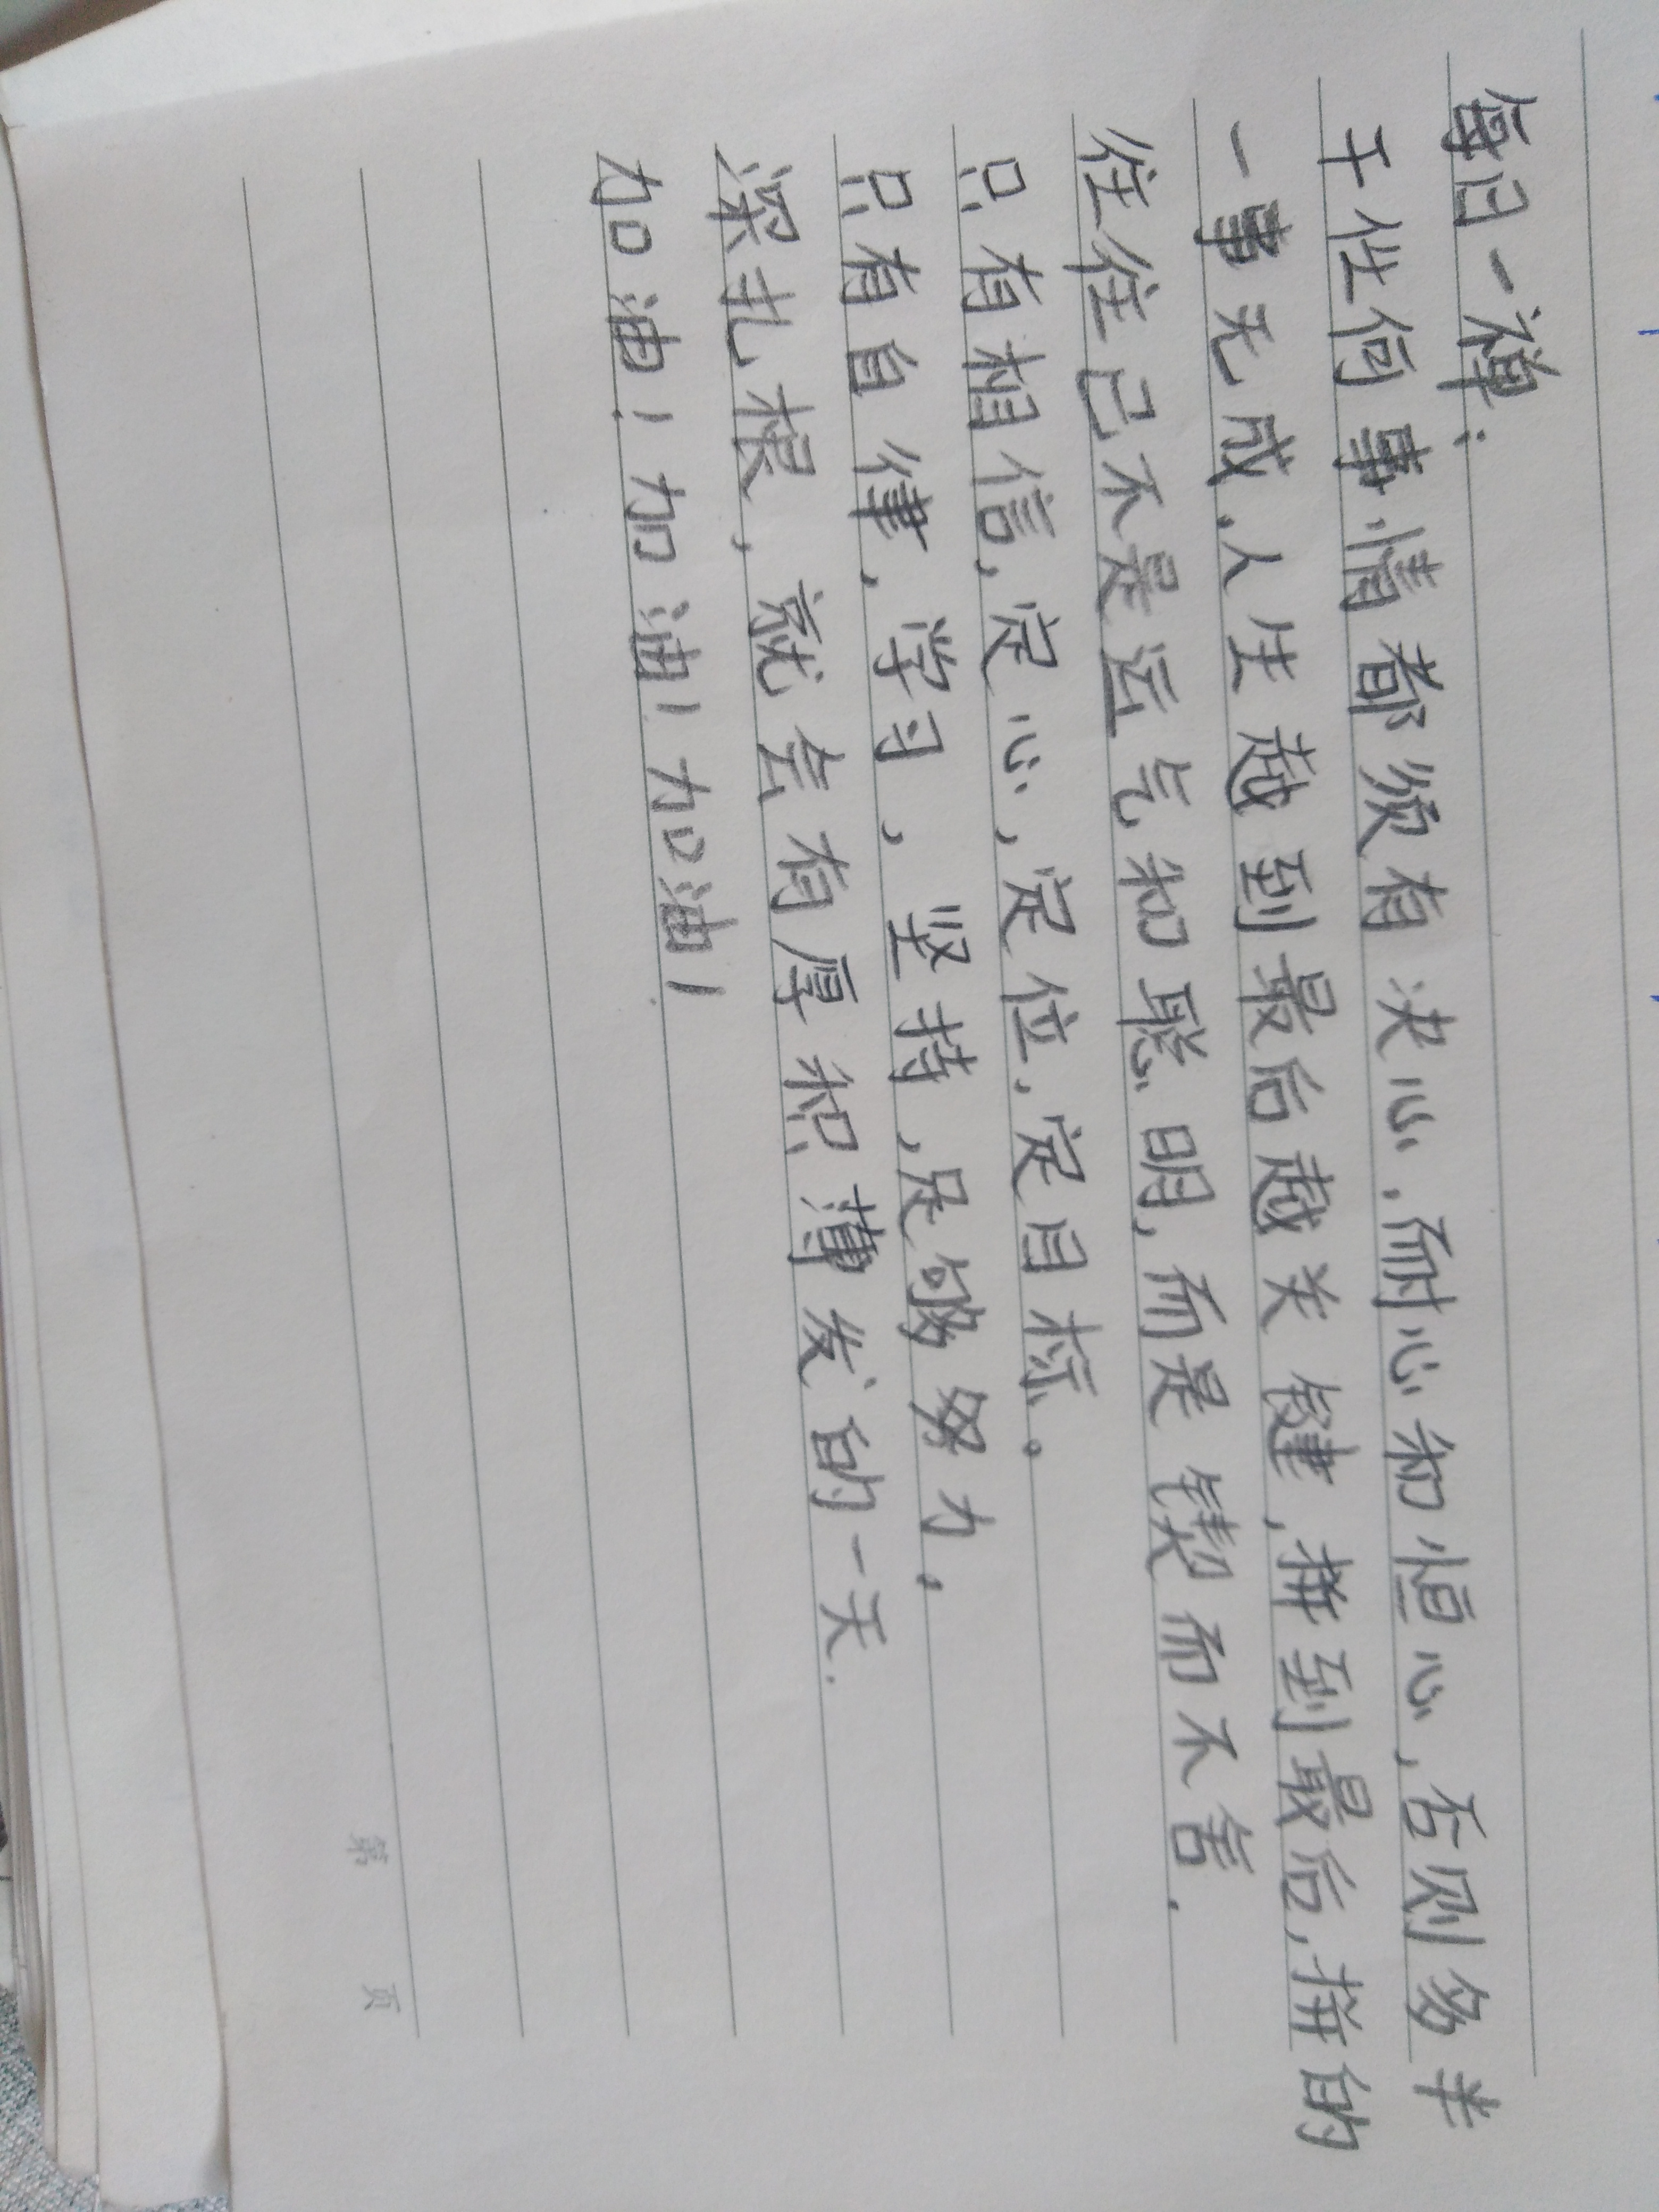 每日一禅:
干任何事情都须有决心,耐心和恒心,否则多半
一事无成,人生越到最后越关键,拼到最后,拼的
往往己不是运气和聪明,而是锲而不舍.
只有相信,定心,定位,定目标。
只有自律,学习,坚持,足够努力,
深扎根,就会有厚积薄发的一天.
加油!加油!加油!
第 页